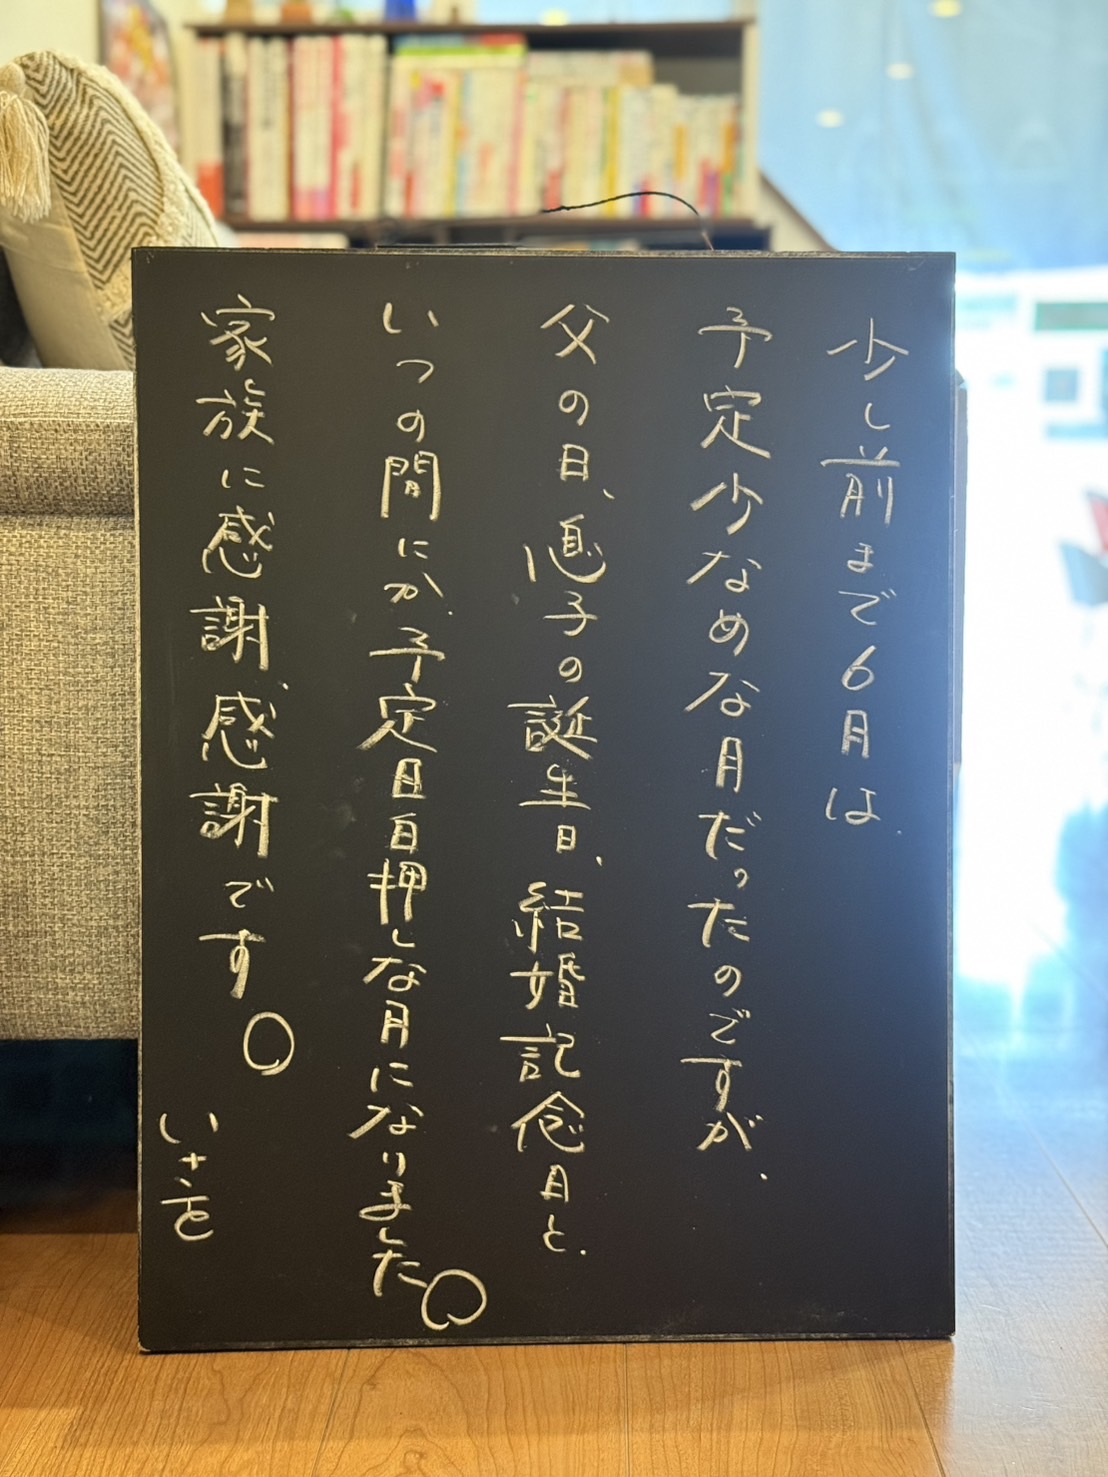 少し前まで6月は、
予定少なめな月だったのですが、
父の日、息子の誕生日、結婚記念日と、
いつの間にか、予定目白押しな月になりました。
家族に感謝、感謝です。